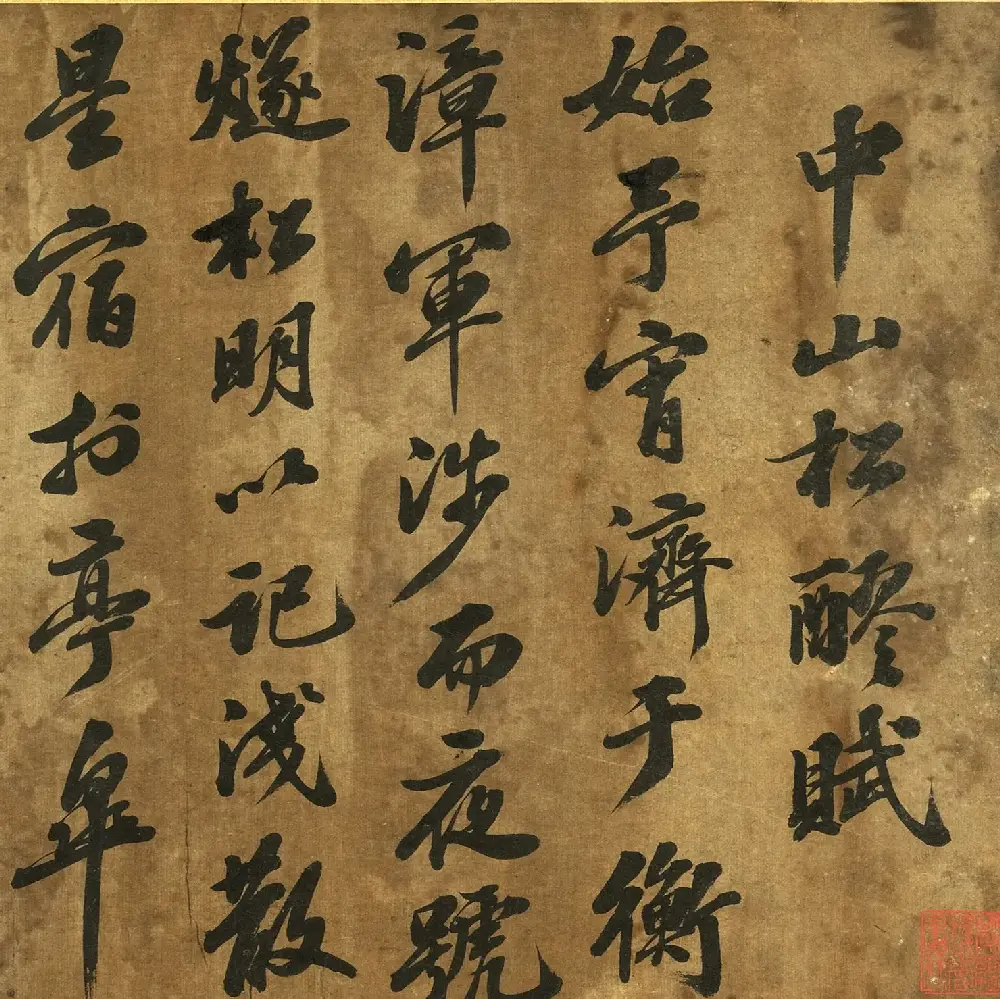 中山松醪賦
始予宵濟于衡
漳軍涉而夜號
燧松明以記淺散
星宿於亭皐